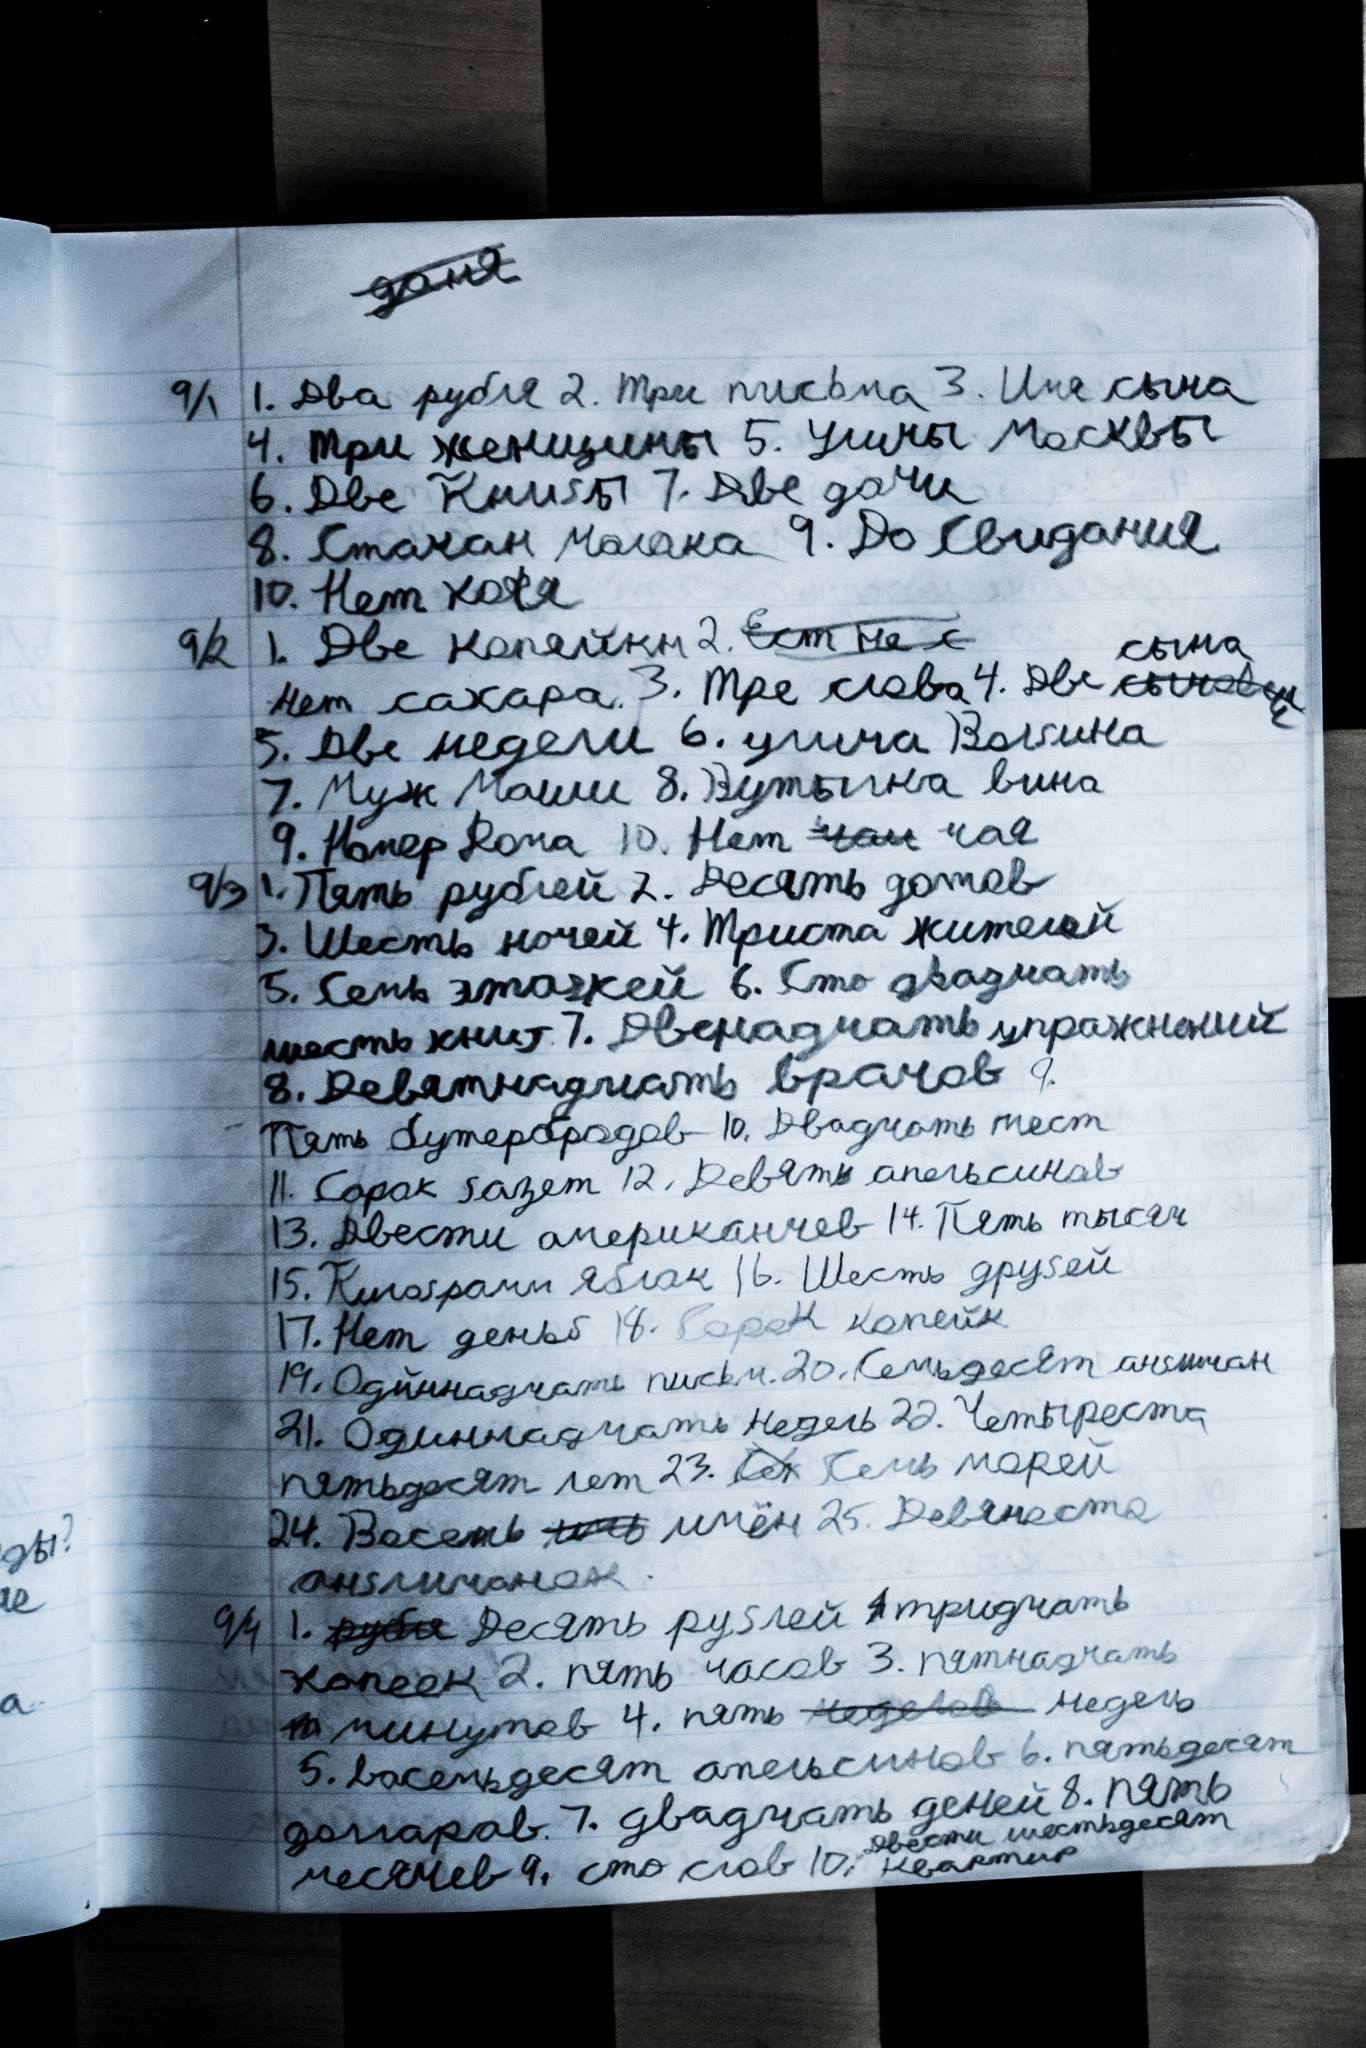 даня
9/1 1. Два рубля 2. Три письма 3. Имя сына
4. Три женщины 5. Улицы Москвы
6. Две Книгы 7. Две дачи
8. Стакан Молока 9. До Свидания
10. Нет
9/2 1. Две копейки 2. Ест не с
сына
нет сахара. 3. Тре слова 4. Две
5. Две недели 6. улица Волгина
7. Муж Маши 8. Бутылка вина
9. Номер Дома 10. Нет чаи чая
9/3 1. Пять рублей 2. Десять домов
3. Шесть ночей 4. Триста жителей
5. Семь этажей 6. Сто двадцать
шесть книг 7. Двенадцать упражнений
8. Девятнадцать врачов 9.
Пять бутербродов 10. Двадцать мест
11. Сорок газет 12. Девять апельсинов
13. Двести американцев 14. Пять тысяч
15. Килограмм яблок 16. Шесть друзей
17. Нет деньг 18. Сорок копейк
19. Одиннадцать письм. 20. Семьдесят англичан
21. Одиннадцать недель 22. Четыреста
пятьдесят лет 23. Сем Семь морей
24. Восемь имён 25. Девяносто
англичанок.
9/4 1. рубл Десять рублей тридцать
копеек 2. пять часов 3. пятнадцать
минутов 4. пять неделов недель
5. восемьдесят апельсинов 6. пятьдесят
долларов. 7. двадцать деней 8. пять
месяцев 9. сто слов 10. Двести шестьдесят
квартир
ды?